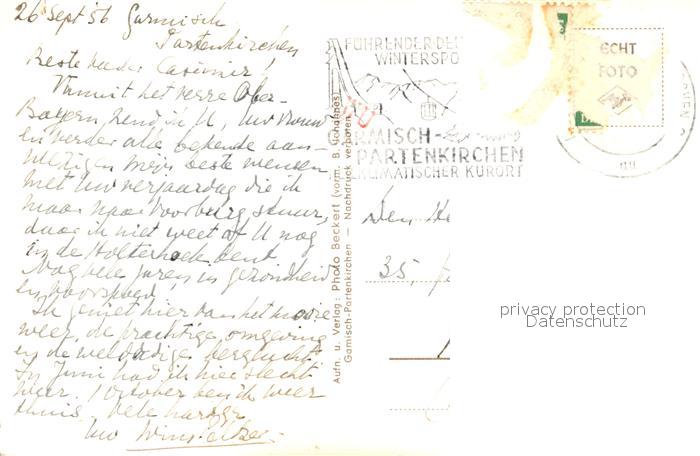 26 Sept 56 Garmisch
Partenkirchen
Beste Casimir!
Vanuit het verre Ober-
Bayern, zend ik U, Uw vrouw
en verder alle bekende aan-
mijn beste wensen
met Uw verjaardag die ik
maar naar Voorburg stuur,
daar ik niet weet of U nog
in de Holterhoek bent
Nog vele jaren in gezondheid
en voorspoed!
Ik geniet hier van het mooie
weer, de prachtige omgeving
en de weldadige berglucht.
In Juni had ik hier slecht
weer. 1 October ben ik weer
thuis. Vele hartgr.
Uw
Aufn. u. Verlag: Photo Beckert (vorm. B. Johannes)
Garmisch-Partenkirchen — Nachdruck verboten
FÜHRENDER DE
WINTERSPO
RMISCH-
PARTENKIRCHEN
KLIMATISCHER KURORT
ECHT
FOTO
Agfa
35,
privacy protection
Datenschutz